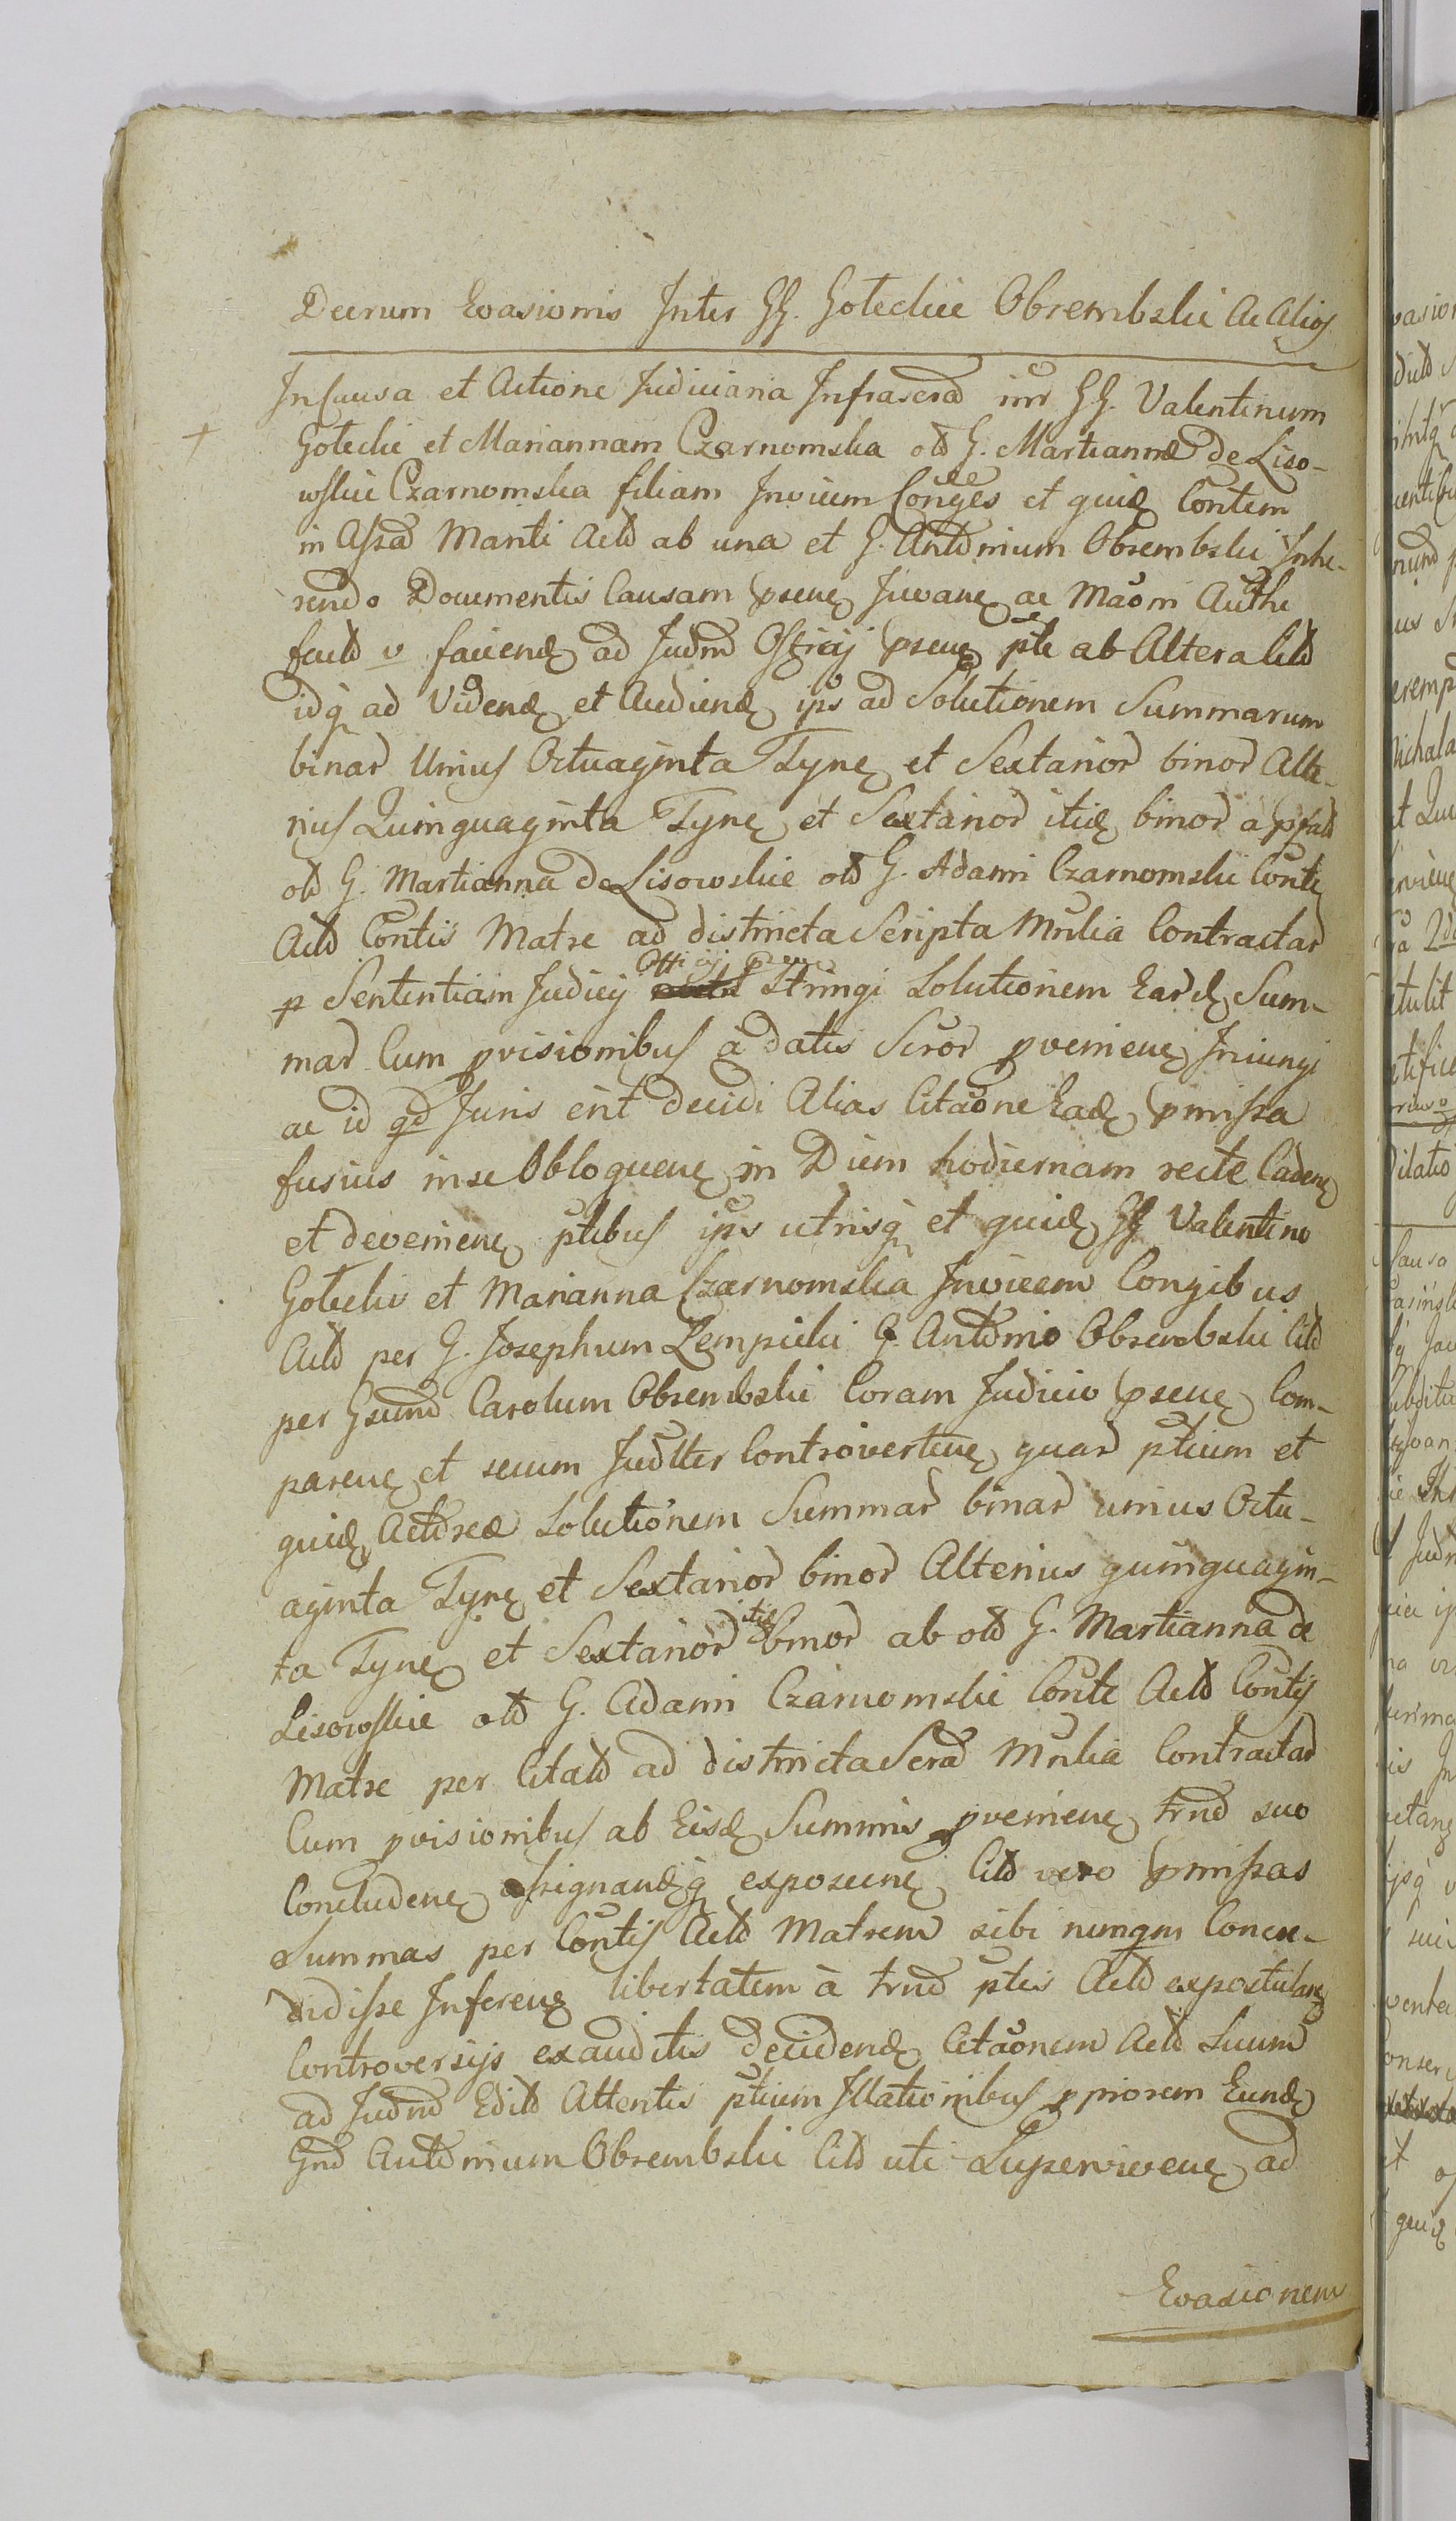 Decrum Evasionis Inter GG. Goteckie Obrembskie Ac Alios
In Causa et Actione Judiciaria Infrascrad intr GG. Valentinum
Gotecki et Mariannam Czarnomska old G. Martiannæ de Liso-
wskie Czarnomska filiam Invicem Conges et quid Contem
in Assad Mariti Actd ab una et G. Antdnium Obrembski Inhe-
rendo Documentis Causam psenc Juvanc ac Maom Authe
facid v faciend ad Judnd Offcij psenc pte ab Altera Citd
idq ad Videnc et Audienc ips ad Solutionem Summarum
binad Unius Octuaginta Tync et Sextariod binod Alte-
rius Quinquaginta Tync et Sextariod itid binod a pfatd
old G. Martianna de Lisowskie old G. Adami Czarnomski Conte
Actd Contis Matre ad districta Scripta Mnlia Contractad
p Sententiam Judicij Officij psenc Stringi Solutionem Eard Sum-
mad Cum pvisionibus a datis Scrod pvenienc Iniungi
ac id qd Juris erit decidi Alias Citaone Ead pmissa
fusius in se Obloquenc in Diem hodiernam recte Cadenc
et devenienc ptibus ips utrisq et quid GG Valentino
Gotecki et Marianna Czarnomska Invicem Congibus
Actd per G. Josephum Zempicki G. Antdnio Obrembski Citd
per Gsund Carolum Obrembski Coram Judicio psenc Com-
parenc et secum Judlter Controvertenc quad ptium et
quid Actdreæ Solutionem Summad binad unius Octu-
aginta Tync et Sextariod binod Alterius quinquagin-
ta Tync et Sextariod itid binod ab old G. Martianna de
Lisowskie old G. Adami Czarnomski Conte Actd Contis
Matre per Citatd ad districta Scrad Mnlia Contractad
Cum pvisionibus ab Eisd Summis pvenienc trnd suo
Concludenc assignandq exposcenc Citd vero pmissas
Summas per Contis Actd Matrem sibi nunqm Concre-
didisse Inferenc libertatem à trnd ptis Actd expostulanc
Controversijs exauditis Decidend Citaonem Actd Suum
ad Judnd Editd Attentis ptium Illationibus ppriorem Eund
Gnd Antdnium Obrembski Citd uti Supervivenc ad
Evasionem